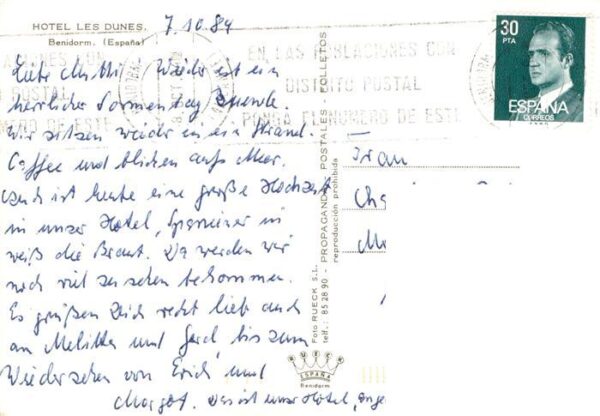 HOTEL LES DUNES.
Benidorm. (España)
7.10.84
Liebe Mutti, Wieder ist ein
herrlicher Sonnentag zuende.
Wir sitzen wieder in ein Strand
Caffee und blicken aufs Meer.
Auch ist heute eine große Hochzeit
in unser Hotel, Spanier in
weiß die Braut. Da werden wir
noch viel zu sehen bekommen.
Es grüßen Dich recht lieb auch
an Melitta und Gerd, bis zum
Wiedersehen von Erich und
Margot. Das ist unser Hotel,
EN LAS POBLACIONES CON
DISTRITO POSTAL
PONGA EL NUMERO DE ESTE
30
PTA
ESPAÑA
CORREOS
Frau
Foto RUECK S.L. - PROPAGANDA - POSTALES - FOLLETOS
telf.: 85 28 90 - reproducción prohibida
RUECK
ESPAÑA
Benidorm